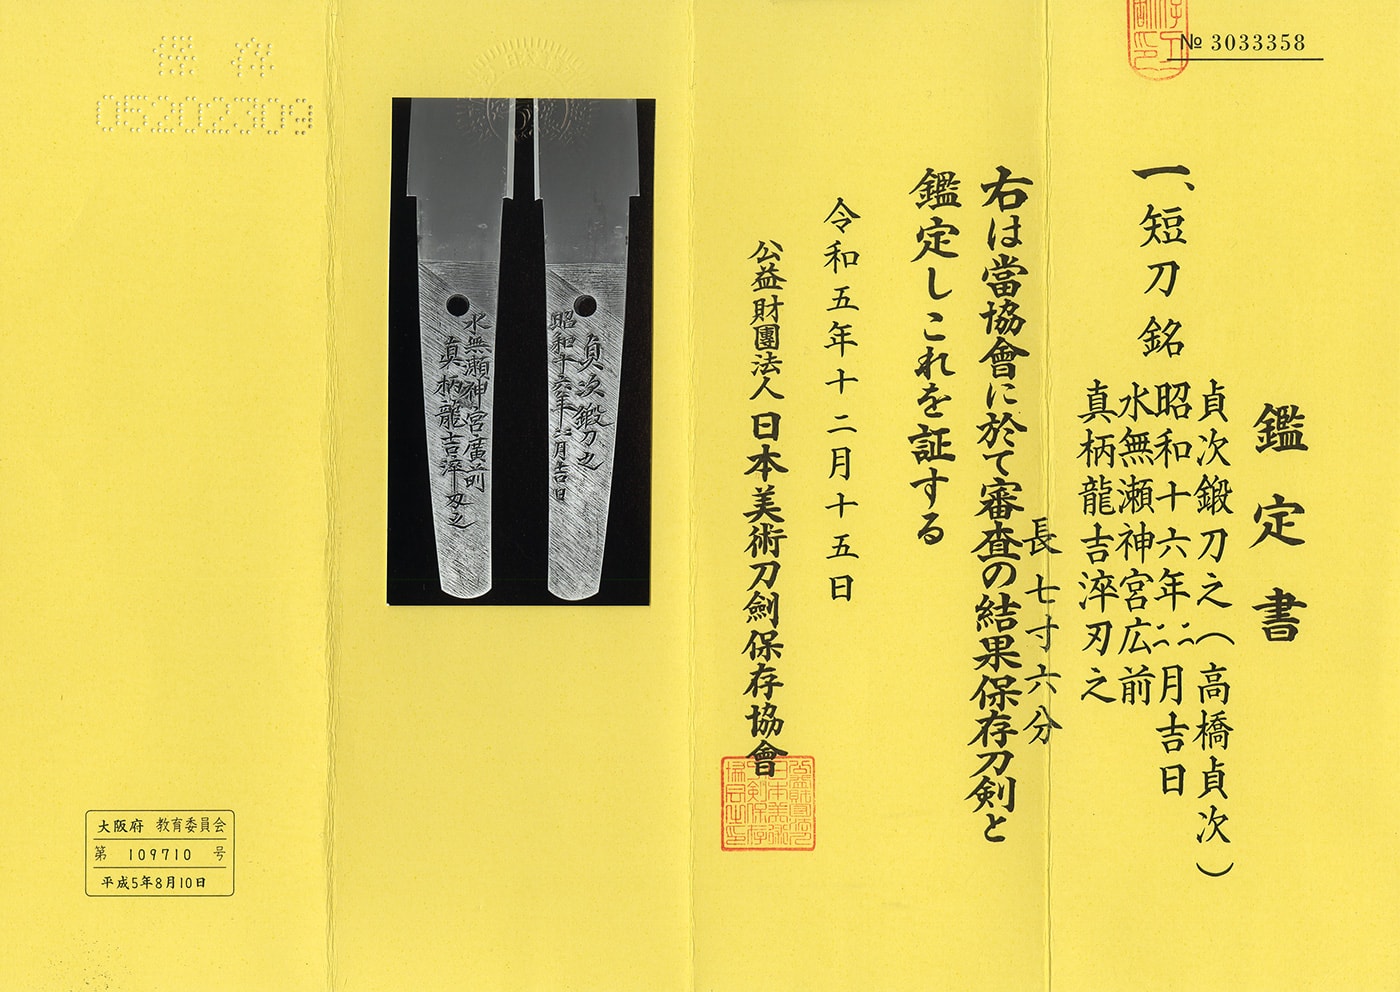 № 3033358
鑑定書
一、短刀銘
貞次鍛刀之(高橋貞次)
昭和十六年二二月吉日
水無瀬神宮広前
真柄龍吉淬刃之
長七寸六分
右は當協會に於て審査の結果保存刀剣と
鑑定しこれを証する
令和五年十二月十五日
公益財團法人日本美術刀劍保存協會
貞次鍛刀之
昭和十六年二二月吉日
水無瀬神宮廣前
真柄龍吉淬刃之
保存
05202309
大阪府 教育委員会
第 109710 号
平成5年8月10日